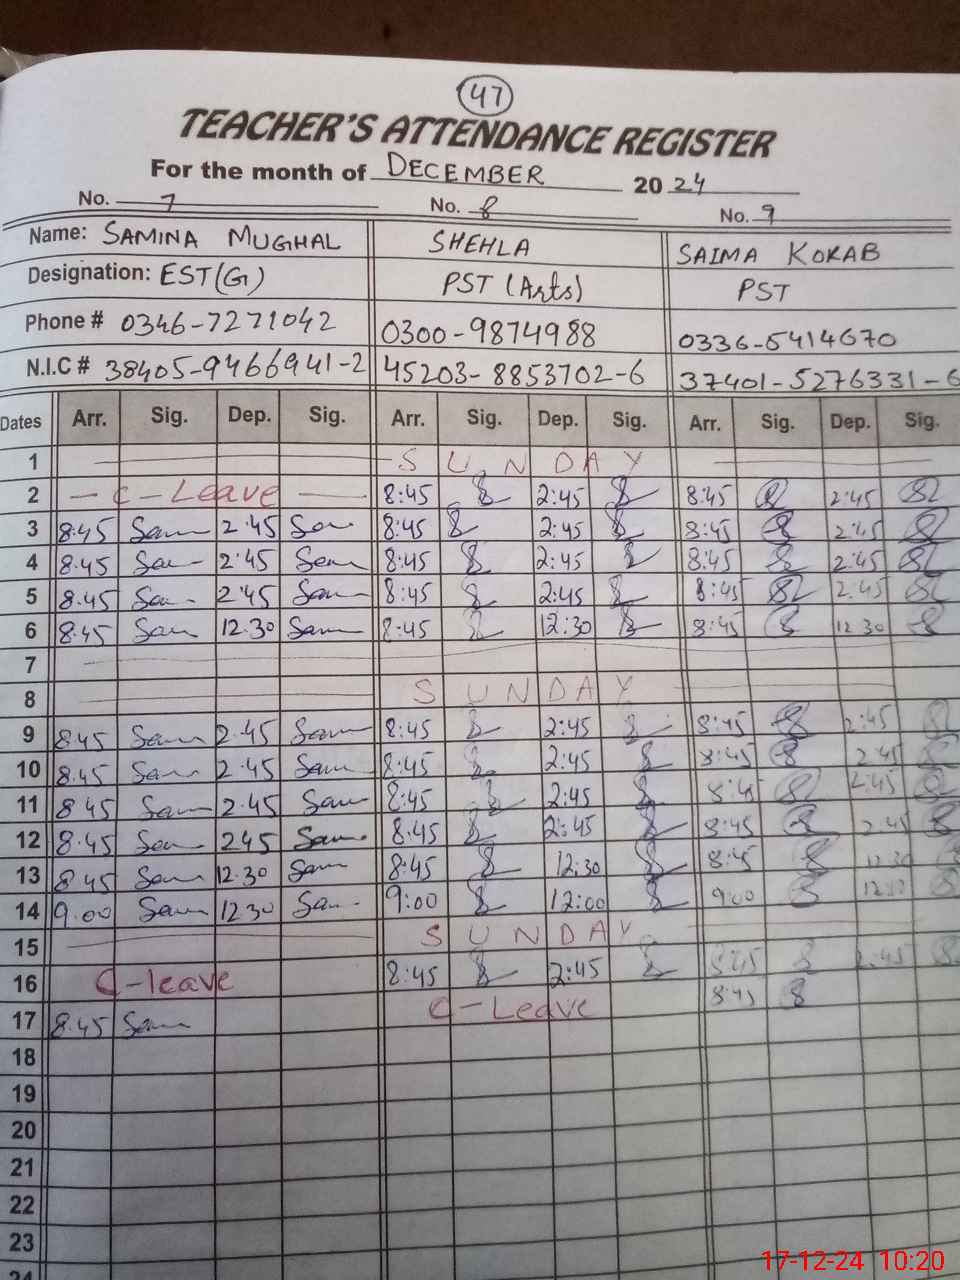 47
TEACHER'S ATTENDANCE REGISTER
For the month of DECEMBER 2024
No. 7 No. 8 No. 9
Name: SAMINA MUGHAL SHEHLA SAIMA KOKAB
Designation: EST(G) PST (Arts) PST
Phone # 0346-7271042 0300-9874988 0336-5414670
N.I.C # 38405-9466941-2 45203-8853702-6 37401-5276331-6
Dates Arr. Sig. Dep. Sig. Arr. Sig. Dep. Sig. Arr. Sig. Dep. Sig.
1 SUNDAY
2 C-Leave 8:45 2:45 8:45 2:45
3 8:45 Sam 2:45 Sam 8:45 2:45 8:45 2:45
4 8.45 Sam 2:45 Sam 8:45 2:45 8:45 2:45
5 8.45 Sam 2:45 Sam 8:45 2:45 8:45 2:45
6 8.45 Sam 12.30 Sam 8:45 12:30 8:45 12 30
7
8 SUNDAY
9 8.45 Sam 2.45 Sam 8:45 2:45 8:45 2:45
10 8.45 Sam 2.45 Sam 8:45 2:45 8:45 2:45
11 8 45 Sam 2.45 Sam 8:45 2:45 8:45 2:45
12 8.45 Sam 245 Sam 8:45 2:45 8:45 2:45
13 8 45 Sam 12.30 Sam 8:45 12:30 8:45 12:30
14 9.00 Sam 12 30 Sam 9:00 12:00 9:00
15 SUNDAY
16 C-leave 8:45 2:45 8:45 2:45
17 8.45 Sam C-Leave 8:45
18
19
20
21
22
23
24
17-12-24 10:20